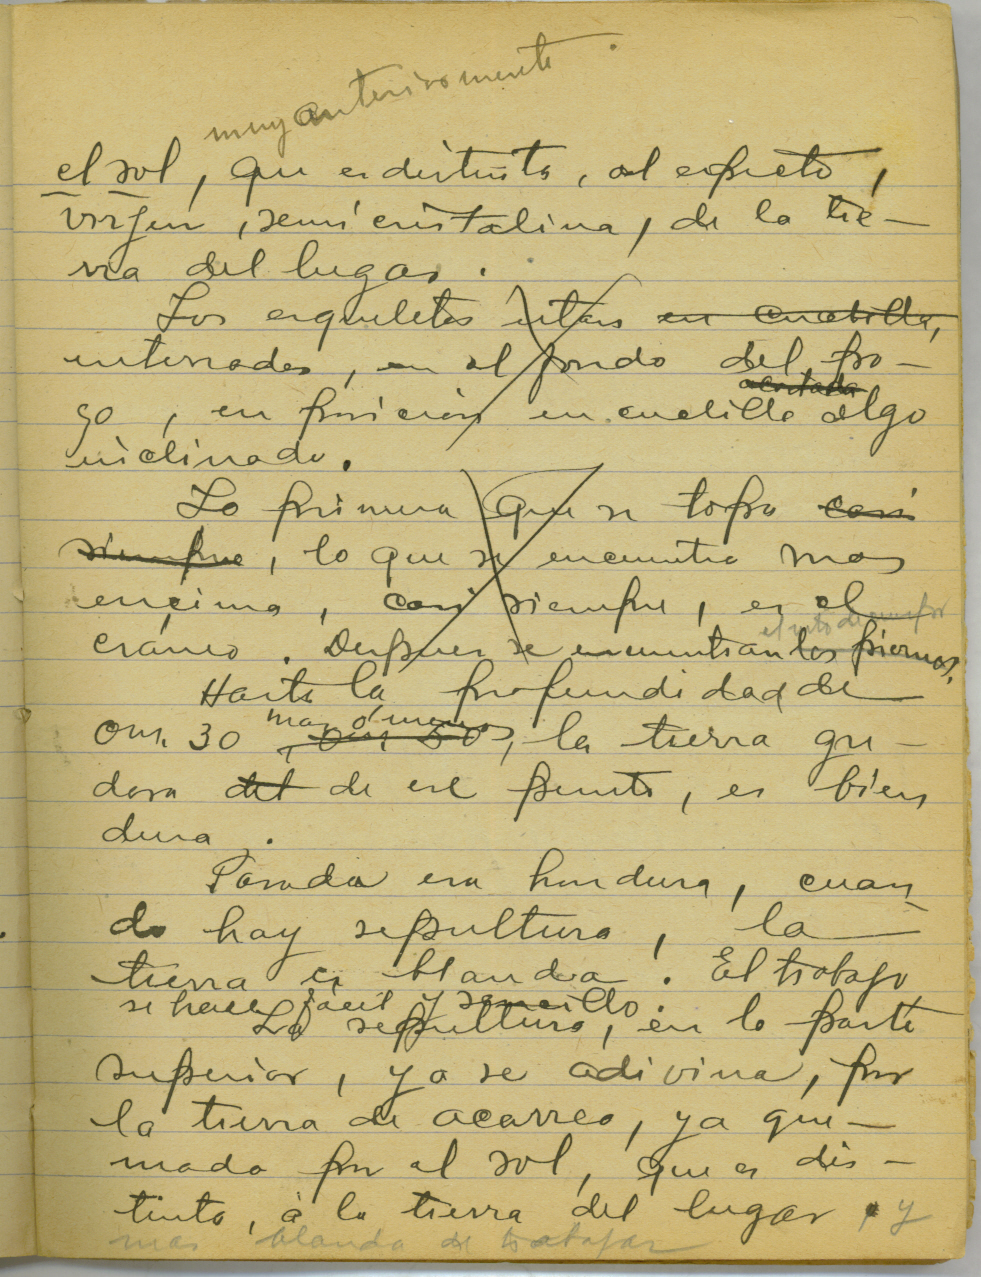 muy anteriormente
el sol, que es distinta, al aspecto,
virgen, semicristalina, de la tie-
rra del lugar.
Los esqueletos están en cuclilla,
enterrados, en el fondo del po-
zo, en posición en cuclilla algo
acostada
inclinado.
Lo primero que se topa casi
siempre, lo que se encuentra mas
encima, casi siempre, es el
cráneo. Despues se encuentran las piernas.
el resto de
Hasta la profundidad de
0m. 30 0m 50, la tierra que-
mas ó menos
dara del de ese punto, es bien
dura.
Pasada esa hondura, cuan
do hay sepultura, la
tierra es blanda. El trabajo
se hace fácil y sencillo.
La sepultura, en la parte
superior, ya se adivina, por
la tierra de acarreo, ya que-
mada por el sol, que es dis-
tinta, à la tierra del lugar, y
mas blanda de trabajar